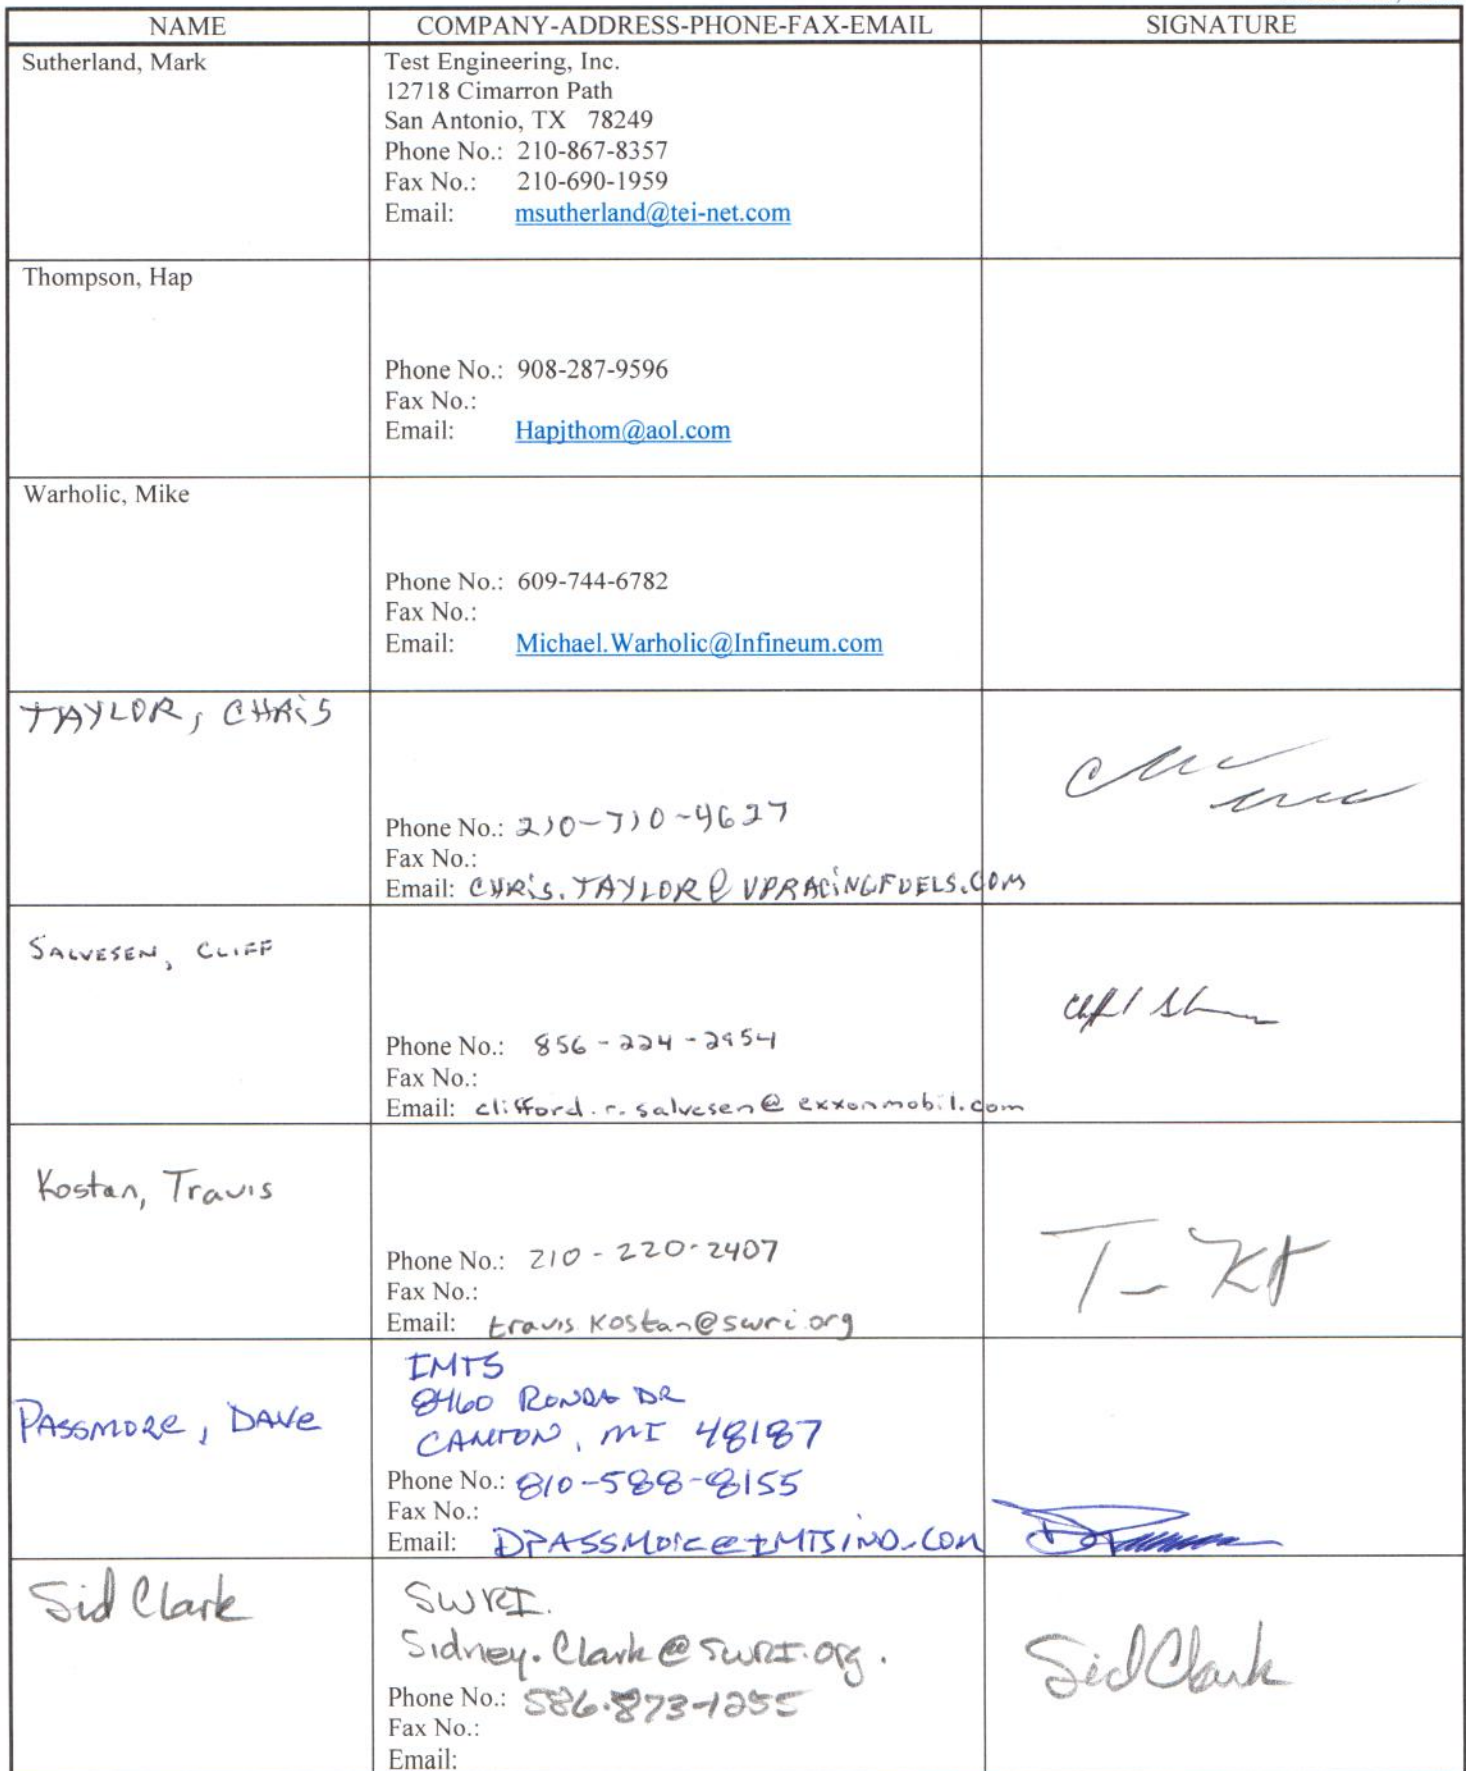 NAME COMPANY-ADDRESS-PHONE-FAX-EMAIL SIGNATURE
Sutherland, Mark Test Engineering, Inc.
12718 Cimarron Path
San Antonio, TX 78249
Phone No.: 210-867-8357
Fax No.: 210-690-1959
Email: msutherland@tei-net.com
Thompson, Hap
Phone No.: 908-287-9596
Fax No.:
Email: Hapjthom@aol.com
Warholic, Mike
Phone No.: 609-744-6782
Fax No.:
Email: Michael.Warholic@Infineum.com
TAYLOR, CHRiS
Phone No.: 210-710-4627
Fax No.:
Email: CHRiS.TAYLOR@VPRACiNGFUELS.COM
SALVESEN, CLIFF
Phone No.: 856-224-2954
Fax No.:
Email: clifford.r.salvesen@exxonmobil.com
Kostan, Travis
Phone No.: 210-220-2407
Fax No.:
Email: travis.kostan@swri.org
PASSMORE, DAVE IMTS
8460 RONDA DR
CANTON, MI 48187
Phone No.: 810-588-8155
Fax No.:
Email: DPASSMORE@IMTSIND.COM
Sid Clark SWRI.
Sidney.Clark@SWRI.org.
Sid Clark
Phone No.: 586-873-1255
Fax No.:
Email: